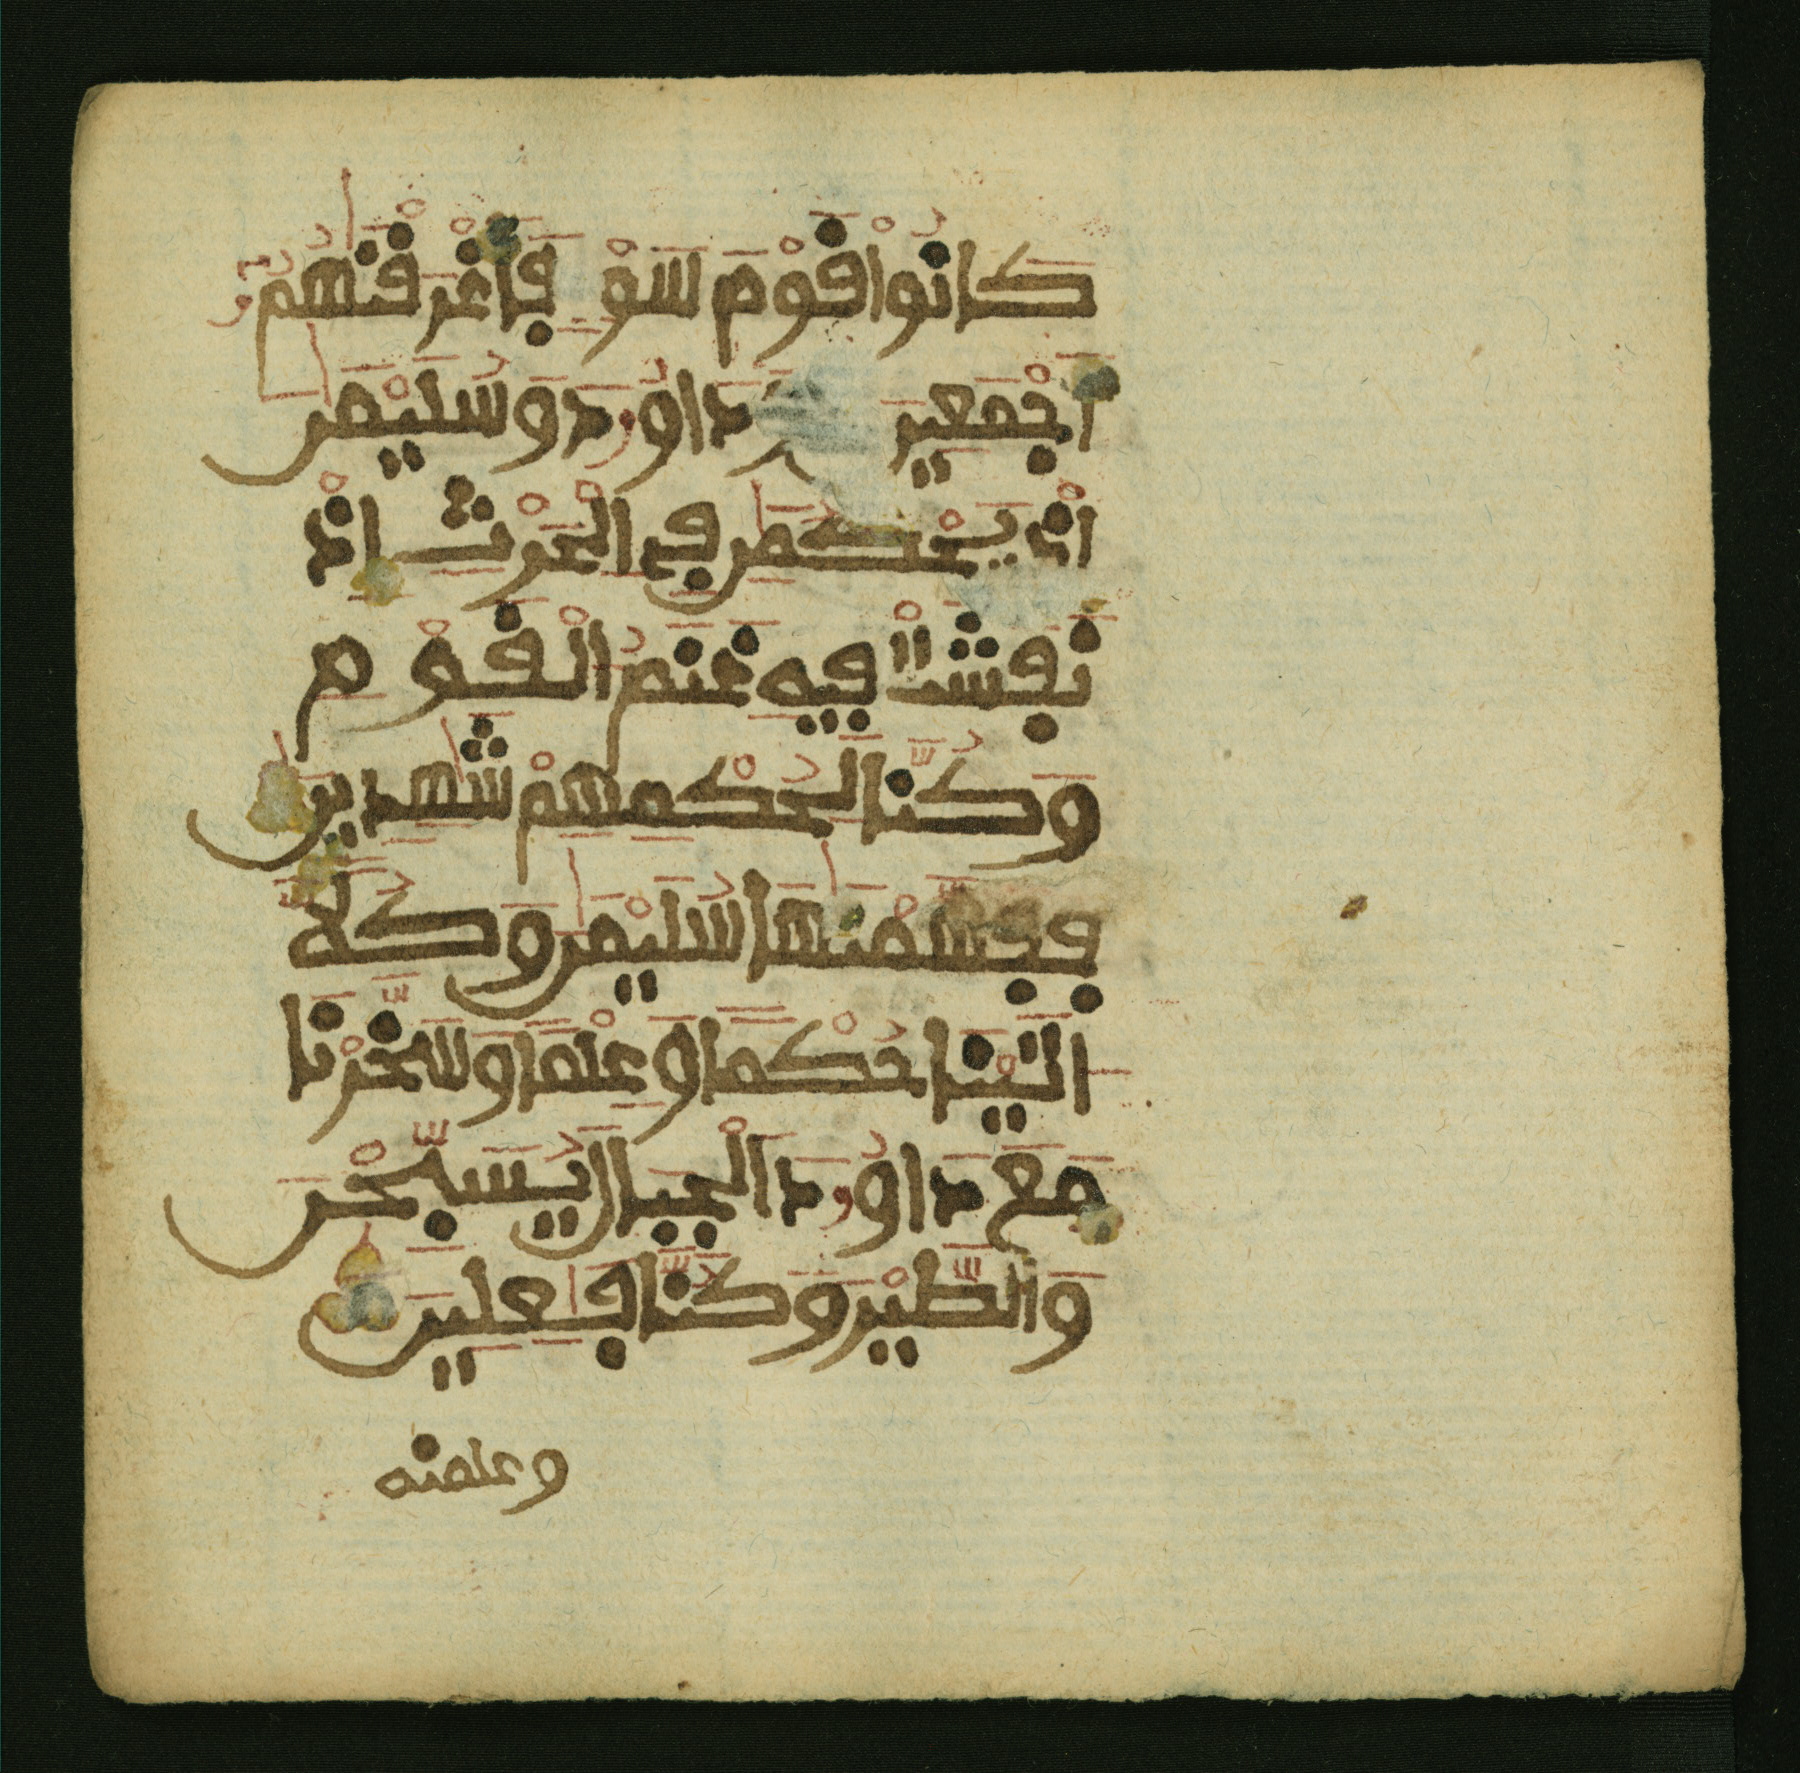 كَانُواْ قَوْمَ سَوْءٍ فَأَغْرَقْنَٰهُمُۥٓ
أَجْمَعِينَ دَاوُۥدَ وَسُلَيْمَٰنَ
إِذْ يَحْكُمَٰنِ فِى الْحَرْثِ إِذْ
نَفَشَتْ فِيهِ غَنَمُ الْقَوْمِ
وَكُنَّا لِحُكْمِهِمْ شَٰهِدِينَ
فَفَهَّمْنَٰهَا سُلَيْمَٰنَ وَكُلّاً
اٰتَيْنَا حُكْماً وَعِلْماً وَسَخَّرْنَا
مَعَ دَاوُۥدَ الْجِبَالَ يُسَبِّحْنَ
وَالطَّيْرَ وَكُنَّا فَٰعِلِينَ
وعلمنه